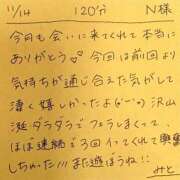 11/14 120分 N様
今日も会いに来てくれて本当に
ありがとう♡今回は前回より
気持ちが通じ合えた気がして
凄く嬉しかったよ(˶ᵕ˶)沢山
涎ダラダラでフェラしまくって、
ほぼ連続で3回イってくれて興奮
しちゃった!!!また遊ぼうね!!
みと